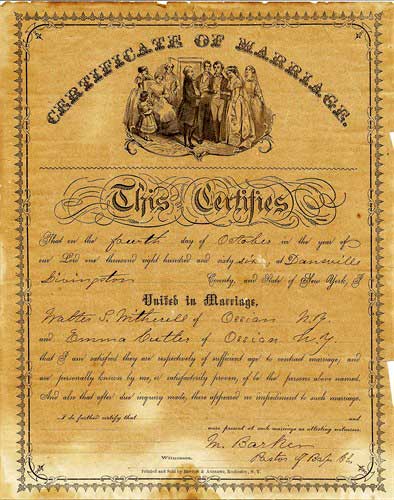 CERTIFICATE OF MARRIAGE.
This Certifies
That on the fourth day of October in the year of
our Lord one thousand eight hundred and sixty at Dansville
Livingston County, and State of New York, I
United in Marriage,
Walter S. Witherell of Ossian N.Y.
and Emma Cutler of Ossian N.Y.
that I am satisfied they are respectively of sufficient age to contract marriage; and
are personally known by me, or satisfactorily proven, to be the persons above named.
And also that after due inquiry made, there appeared no impediment to such marriage.
I do further certify that and
were present at such marriage as attesting witnesses.
M. Barker
Pastor of Bap. Ch.
Witnesses.
Printed and Sold by & Andrews, Rochester, N. Y.